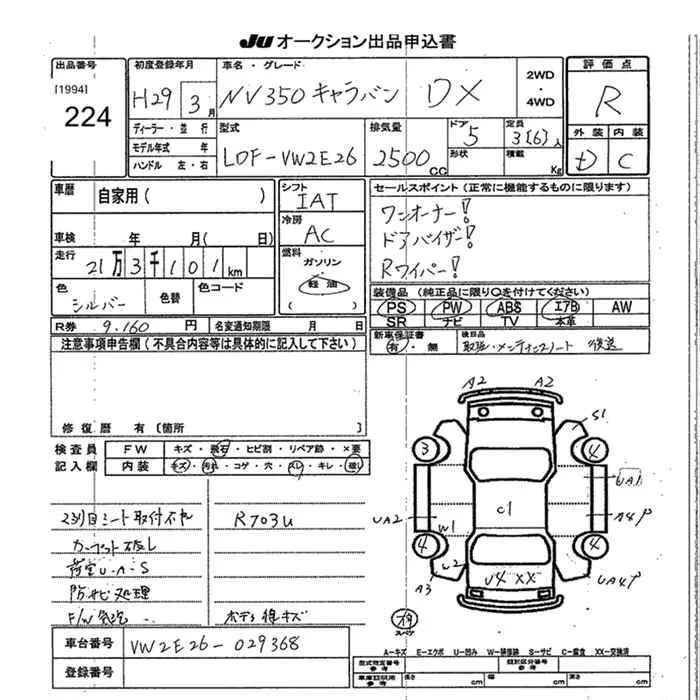 JU オークション出品申込書
出品番号 初度登録年月 車名・グレード 2WD ・ 4WD 評価点
[1994] 224 H29 3月 NV350 キャラバン DX R
ディーラー・並行 型式 排気量 ドア 定員 外装 内装
モデル年式 年 LDF-VW2E26 2500cc 5 3[6]人 D C
ハンドル 左・右 形状 積載 Kg
車歴 自家用( ) シフト IAT セールスポイント(正常に機能するものに限ります)
冷房 AC ワンオーナー!
車検 年 月( 日) ドアバイザー!
走行 21万3千101km 燃料 ガソリン 軽油 ( ) Rワイパー!
色 シルバー 色替 色コード 装備品(純正品に限り○を付けてください)
PS PW ABS エアB AW
R券 9.160円 名変通知期限 月 日 SR ナビ TV 本革
注意事項申告欄(不具合内容等は具体的に記入して下さい) 新車保証書 有・無 後日品 取扱・メンテナンスノート 後送
修復歴 有〔箇所
検査員 FW キズ・飛石・ヒビ割・リペア跡・×要
記入欄 内装 キズ・汚れ・コゲ・穴・スレ・キレ・破し
2列目シート取付不れ R703U
カーペット破し
荷室U・A・S
防サビ処理
F/W発泡 ボディ線キズ
A2 A2
S1
3 4
UA1
UA2 W1 C1 A4P
4 4
W2 A3 U4 XX UA4P
スペア
車台番号 VW2E26-029368
登録番号
A-キズ E-エクボ U-凹み W-補修跡 S-サビ C-腐食 XX-交換済
型式指定番号 参考 類別区分番号 参考
車庫証明用 参考 長さ cm 幅 cm 高さ cm